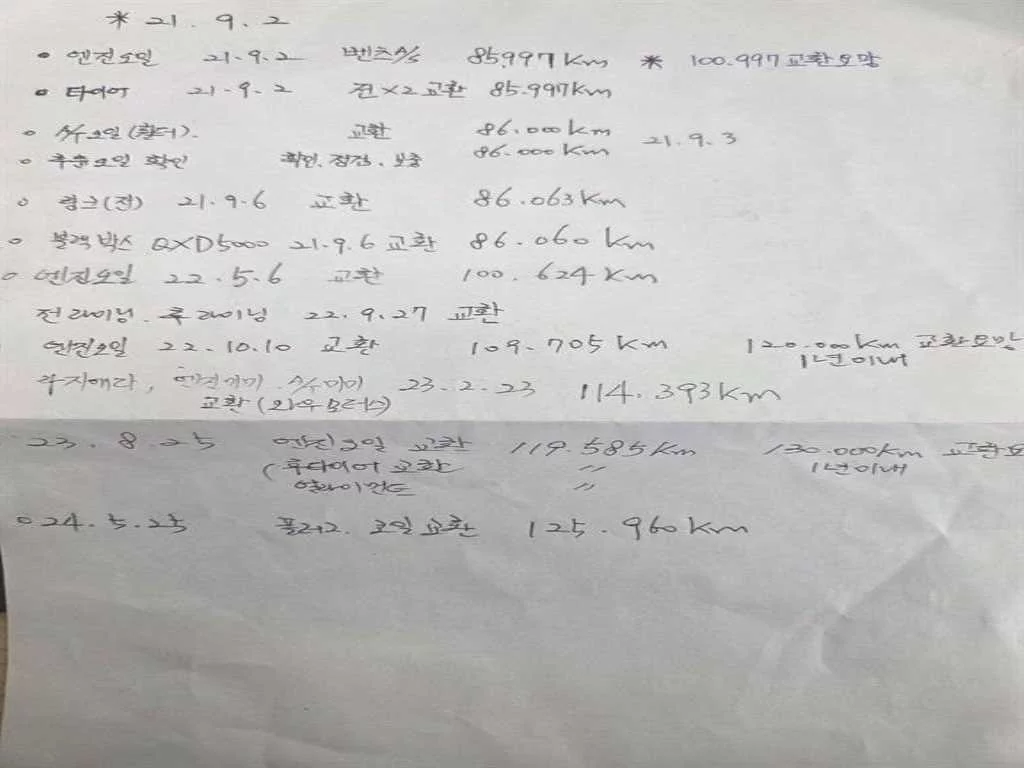 * 21. 9. 2
• 엔진오일 21.9.2 벤츠A/S 85.997Km * 100.997 교환요망
• 타이어 21.9.2 전×2 교환 85.997Km
○ A/S오일(휠터). 교환 86.000km 21.9.3
○ 확인 확인. 점검. 보충 86.000Km
○ 링크(전) 21.9.6 교환 86.063Km
○ 블랙박스 QXD5000 21.9.6 교환 86.060 Km
○ 엔진오일 22.5.6 교환 100.624Km
전 라이닝. 후 라이닝 22.9.27 교환
엔진오일 22.10.10 교환 109.705Km 120.000km 교환요망
1년이내
엔진미미 23.2.23 114.393Km
교환(와우모터스)
23.8.25 엔진오일 교환 119.585Km 130.000Km 교환요
(후타이어 교환 〃 1년이내
얼라이먼트 〃
○ 24.5.25 플러그. 코일교환 125.960Km